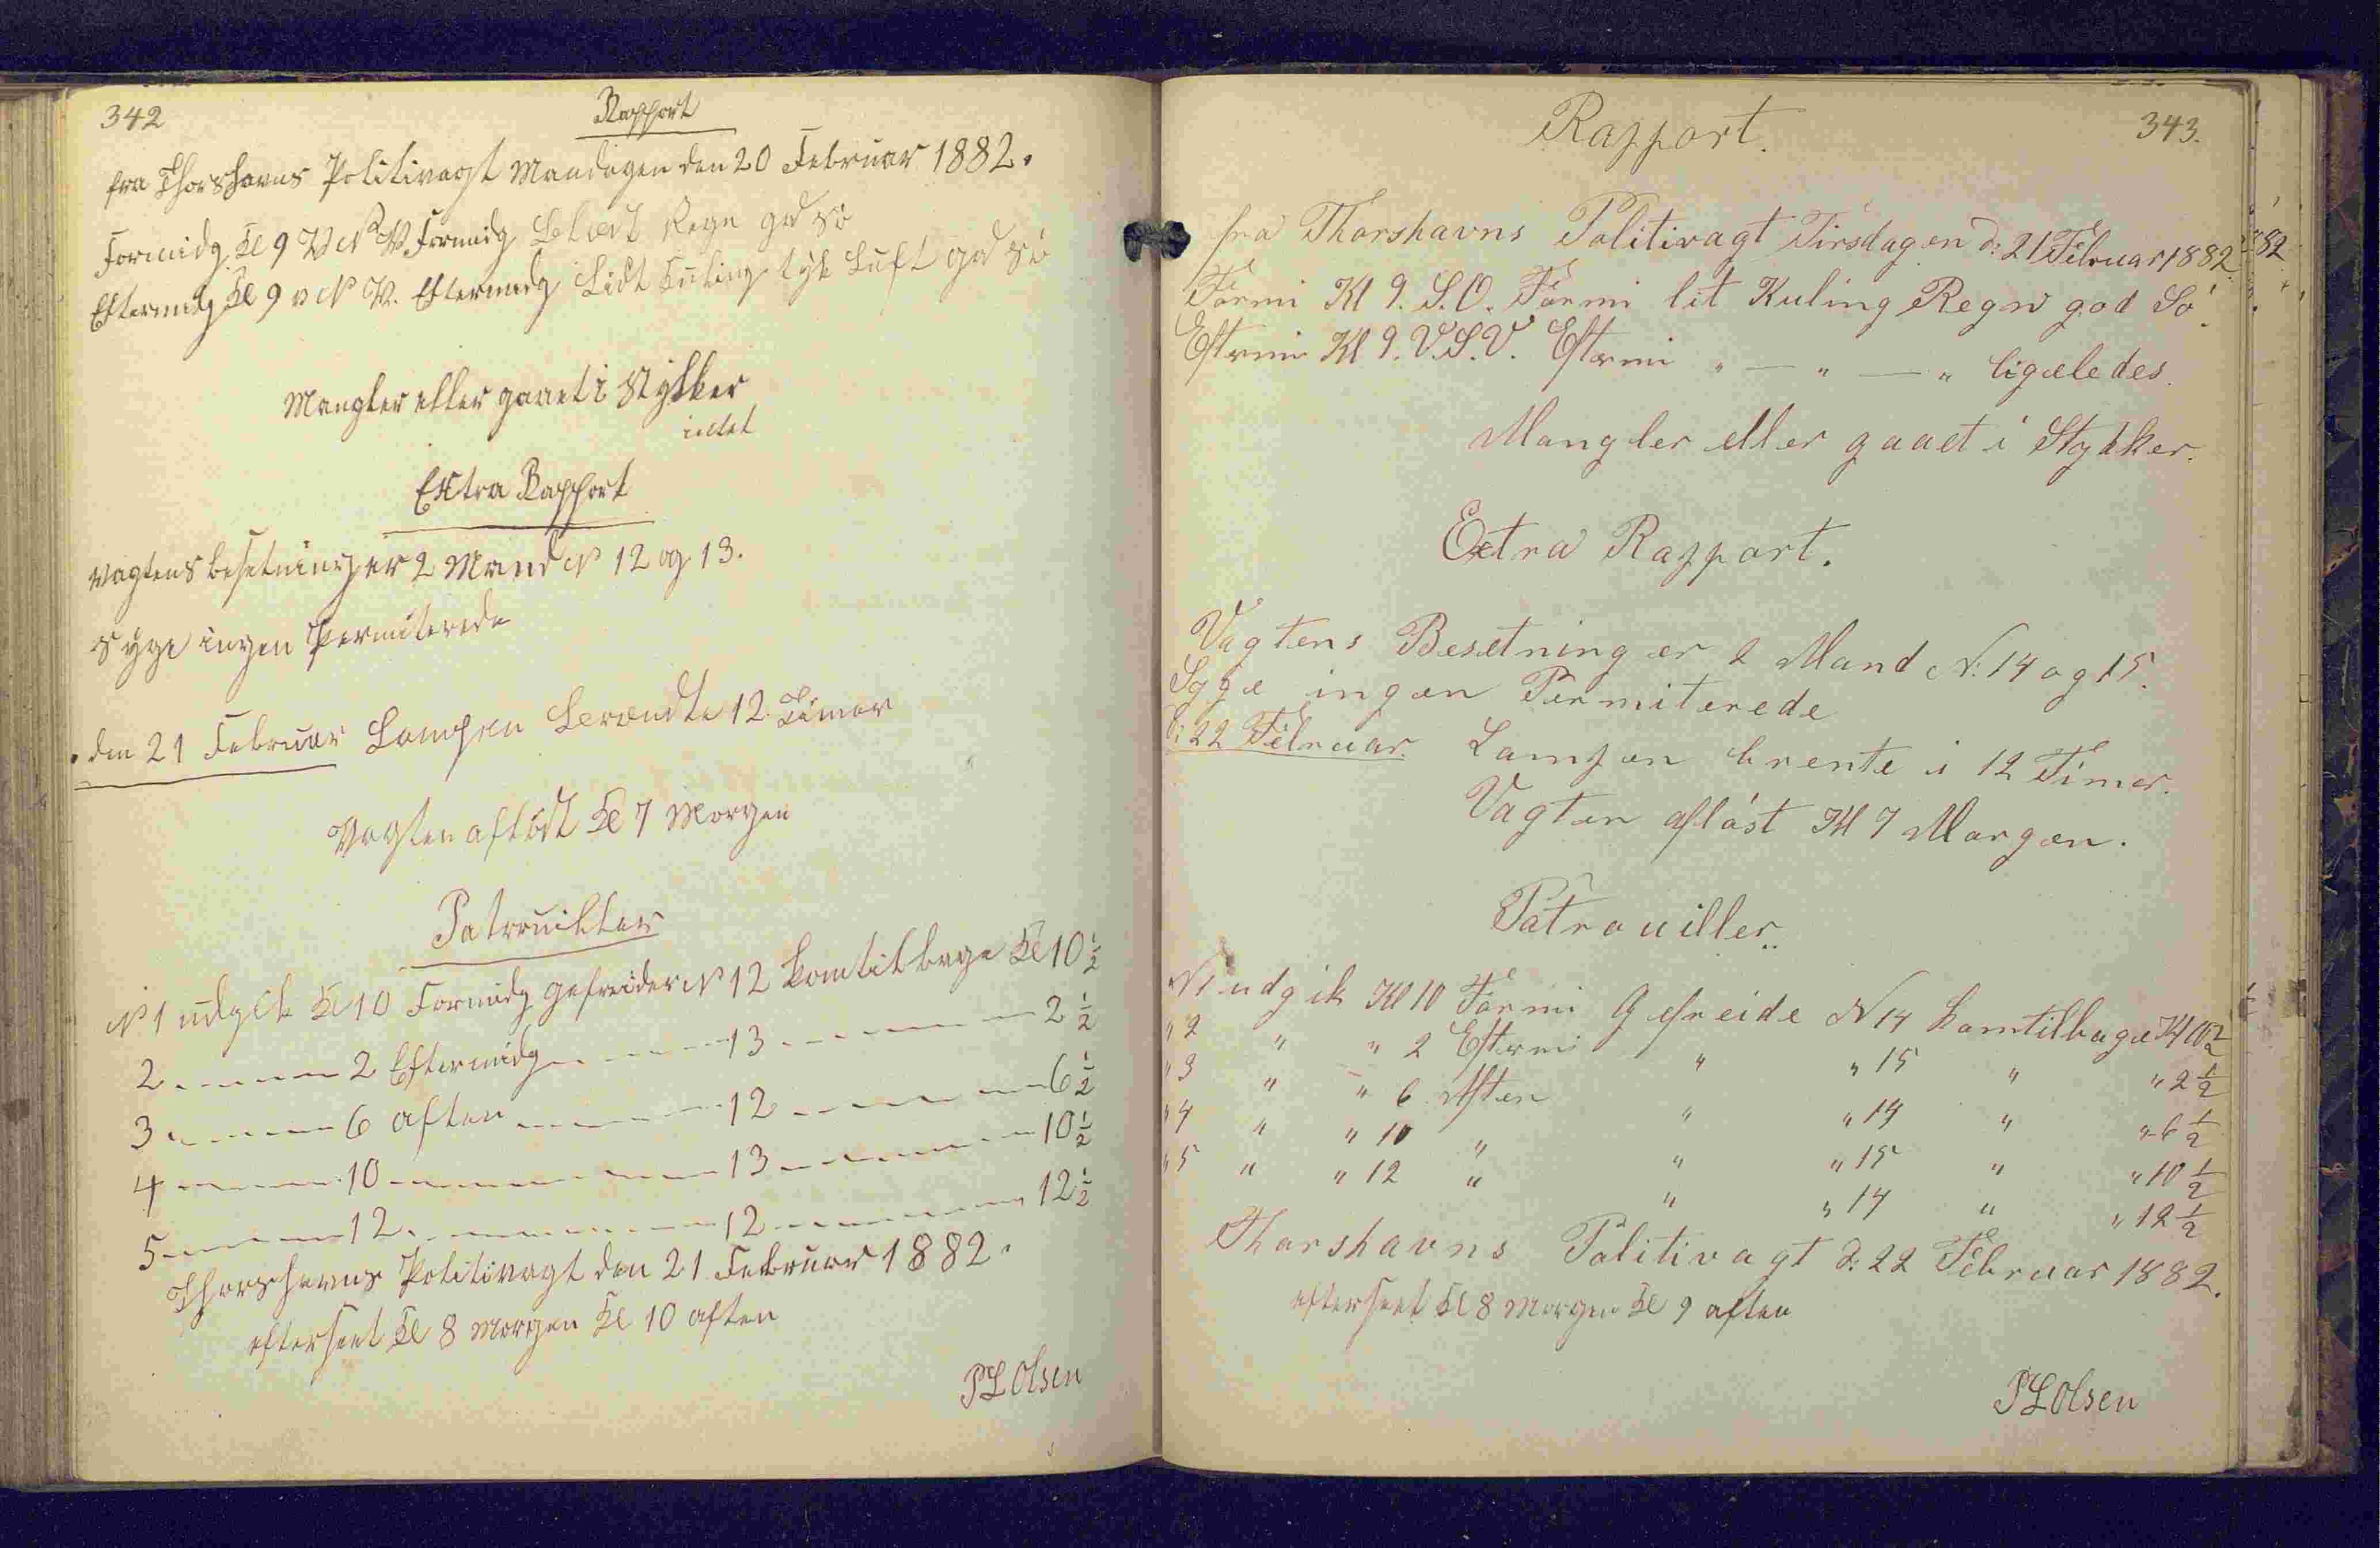 342
Rapport
fra Thorshavns Politivagt Mandagen den 20 Februar 1882.
Formidg Kl 9 V N V Formidg Regn god Sö
Eftermidg Kl 9 v N V. Eftermidg Lidt Kuling tyk Luft god Sö
Mangler eller gaaet i Stykker
intet
Extra Rapport
Vagtens besetning er 2 Mand N 12 og 13.
Syge ingen Permiterede
den 21 Februar Lampen brændte 12 Timer
Vagten aflöst Kl 7 Morgen
Patrouiller
N 1 udgik Kl 10 Formidg gefreider N 12 kom tilbage Kl 10 1/2
2 - - - - 2 Eftermidg - - - - 13 - - - - 2 1/2
3 - - - - 6 aften - - - - 12 - - - - 6 1/2
4 - - - - 10 - - - - 13 - - - - 10 1/2
5 - - - - 12 - - - - 12 - - - - 12 1/2
Thorshavns Politivagt den 21 Februar 1882.
efterseet Kl 8 Morgen Kl 10 aften
P L Olsen
Rapport.
343.
fra Thorshavns Politivagt Tirsdagen d: 21 Februar 1882.
Formi Kl 9. S.O. Formi lit Kuling Regn god Sö.
Eftrmi Kl 9. V.S.V. Eftermi " — " — " ligeledes.
Mangler eller gaaet i Stykker.
Extra Rapport.
Vagtens Besetning er 2 Mand N. 14 og 15.
Syge ingen Permiterede
D: 22 Februar. Lampen brente i 12 Timer.
Vagten aflöst Kl 7 Morgen.
Patrouiller.
N 1 udgik Kl 10 Formi Gefreide N 14 komtilbage Kl 10 1/2
" 2 " " 2 Eftermi " " 15 " " 2 1/2
" 3 " " 6 Aften " " 14 " " 6 1/2
" 4 " " 10 " " " 15 " " 10 1/2
" 5 " " 12 " " " 14 " " 12 1/2
Thorshavns Politivagt d: 22 Februar 1882.
efterseet Kl 8 Morgen Kl 9 aften
P L Olsen